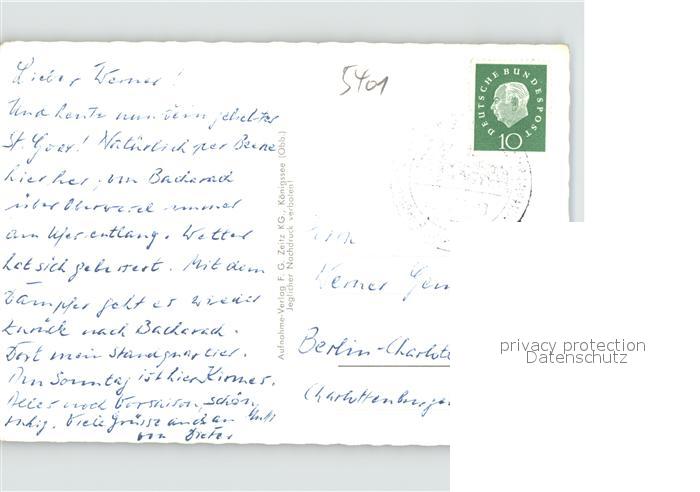 Lieber Werner!
Und heute nun Dein geliebter
St. Goar! Natürlich per Beene
hierher, von Bacharach
über Oberwesel immer
am Ufer entlang. Wetter
hat sich gebessert. Mit dem
Dampfer geht es wieder
zurück nach Bacharach.
Dort mein Standquartier.
Am Sonntag ist hier Kirmes.
Alles noch Vorsaison, schön
ruhig. Viele Grüsse auch an
von Dieter
5401
Aufnahme-Verlag F. G. Zeitz KG., Königssee (Obb.)
Jeglicher Nachdruck verboten!
DEUTSCHE BUNDESPOST
10
Herrn
Werner
Berlin-Charlotte
Charlottenburger
privacy protection
Datenschutz